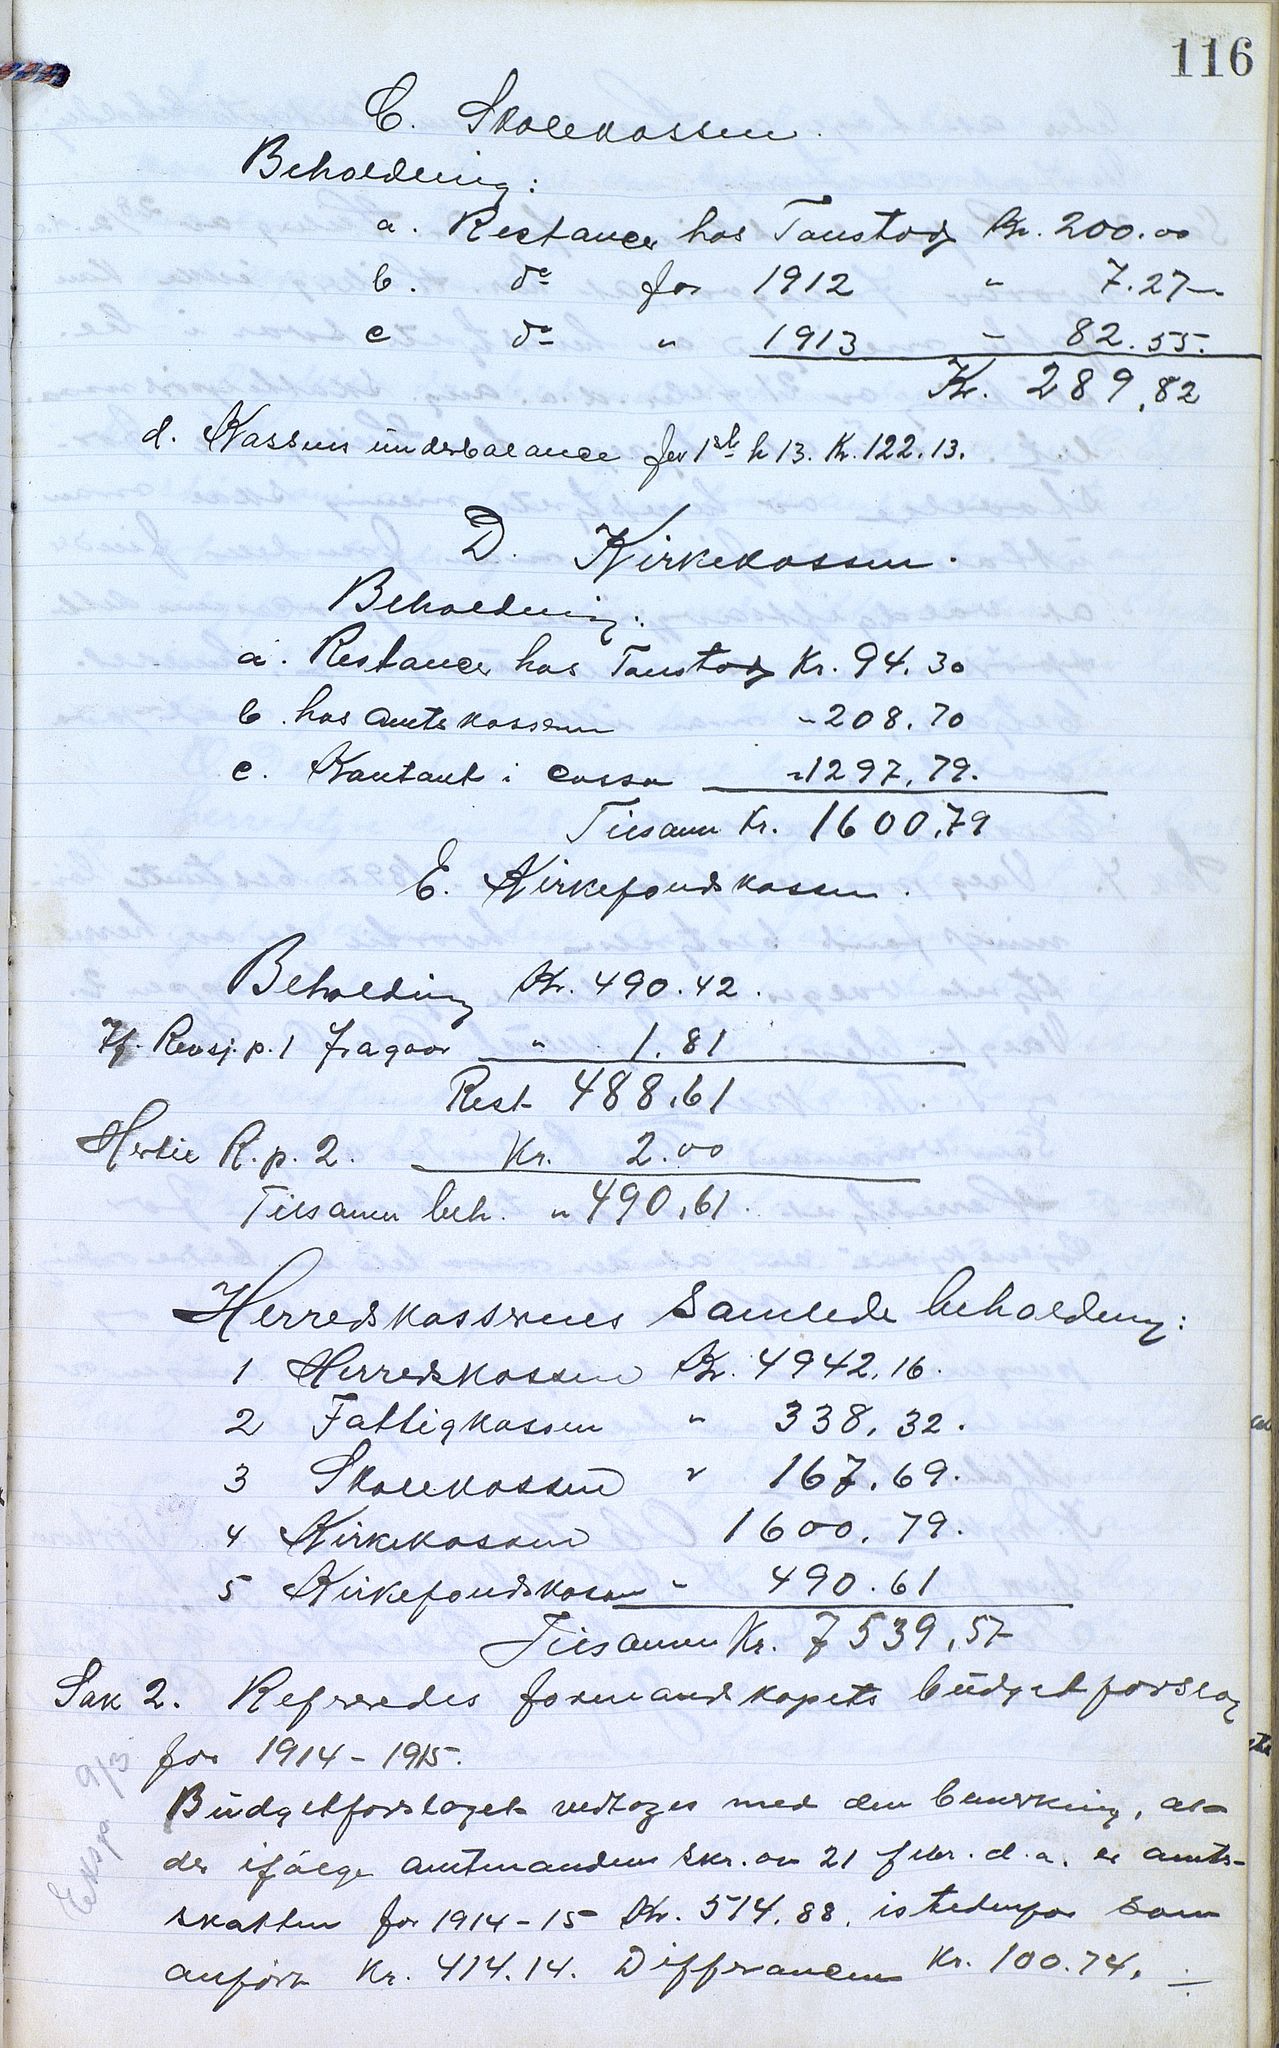 116
C. Skolekassen.
Beholdning:
a. Restancer hos Taustog Kr. 200.00
b. do for 1912 " 7.27
c do " 1913 - 82.55.
Kr. 289,82
d. Kassens underbalance for 1912 h 13. Kr. 122.13.
D. Kirkekassen.
Beholdning:
a. Restancer hos Taustog Kr. 94.30
b. hos amtskassen - 208.70
c. Kontant i cassa " 1297,79.
Tilsamm Kr. 1600,79
E. Kirkefondskassen.
Beholdning Kr. 490.42.
If. Revsj. p. 1 fragaar " 1.81
Rest 488,61
Hertil R. p. 2. Kr. 2.00
Tilsamm beh. " 490,61.
Herredskassernes samlede beholdning:
1 Herredskassen Kr. 4942,16.
2 Fattigkassen " 338,32.
3 Skolekassen " 167.69.
4 Kirkekassen 1600.79.
5 Kirkefondskassen " 490.61
Tilsammen Kr. 7539,57
Sak 2. Refereredes formandskapets büdgetforslag
for 1914-1915.
Büdgetforslaget vedtoges med den bemerkning, at
der ifølge amtmandens skr. av 21 febr. d.a. er amts-
skatten for 1914-15 Kr. 514.88, istedenfor som
anført Kr. 414.14. Differancen Kr. 100.74,
Eksp 9/3